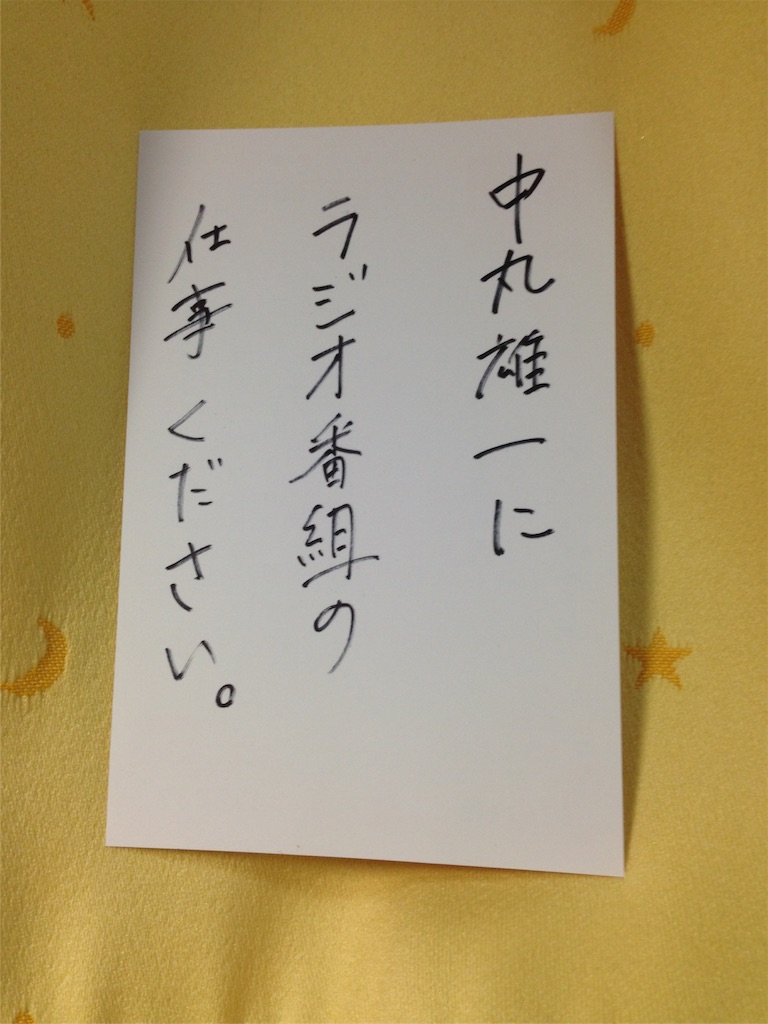 中丸雄一に
ラジオ番組の
仕事ください。